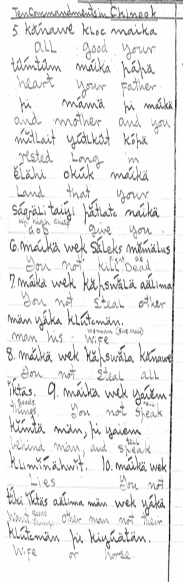 Ten Commandments in Chinook
5 kănawe kloc maika
all good your
tŭmtŭm măika păpă
heart your father
pi mămă pi maikă
and mother and you
mitlait yŭtlkăt kŏpă
rested Long in
ĕlăhi okŭk măikă
Land that your
săgăli taiyi pătlatc maikă
God give you
6. măikă wek săleks mĕmălus
You not kill Dead
7. măikă wek kăpswălă aălima
You not steal other
măn yăkă klŭtcmăn.
man his wife
8. măikă wek kăpswăla kănawe
You not steal all
iktăs. 9. măikă wek yaiem
things You not speak
kimtă măn, pi yaiem
behind man, and speak
kliminăhwit. 10. măikă wek
Lies You not
tiki iktăs aălima măn wek yăkă
want goods other man not their
klŭtcmăn pi kiyŭătăn.
wife or horse